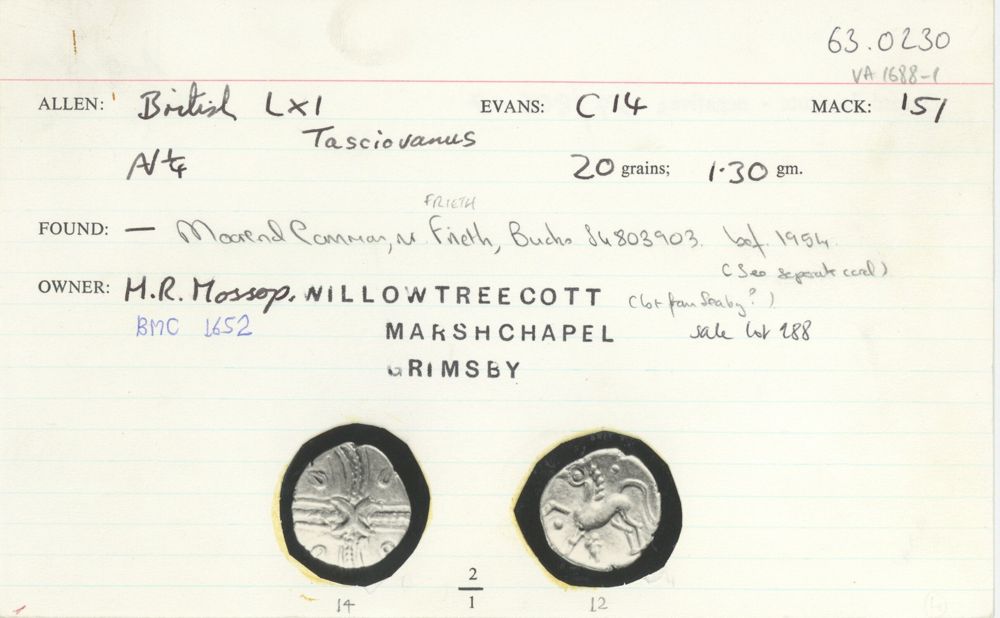 63.0230
VA 1688-1
ALLEN: British LX1 EVANS: C14 MACK: 151
Tasciovanus
20 grains; 1.30 gm.
FRIETH
FOUND: — Moorend Common, nr. Frieth, Bucks SU 803903. bef. 1954.
(See separate card)
OWNER: H.R. Mossop. WILLOWTREE COTT (lot from Seaby?)
BMC 1652 MARSHCHAPEL sale lot 288
GRIMSBY
2
14 1 12